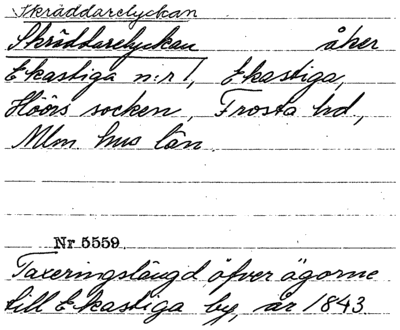 Skräddarelyckan
Skräddarelyckan åker
Ekastiga n:r 1, Ekastiga,
Höörs socken, Frosta hd,
Mlm hus län.
Nr 5559
Taxeringslängd öfver ägorne
till Ekastiga by, år 1843.